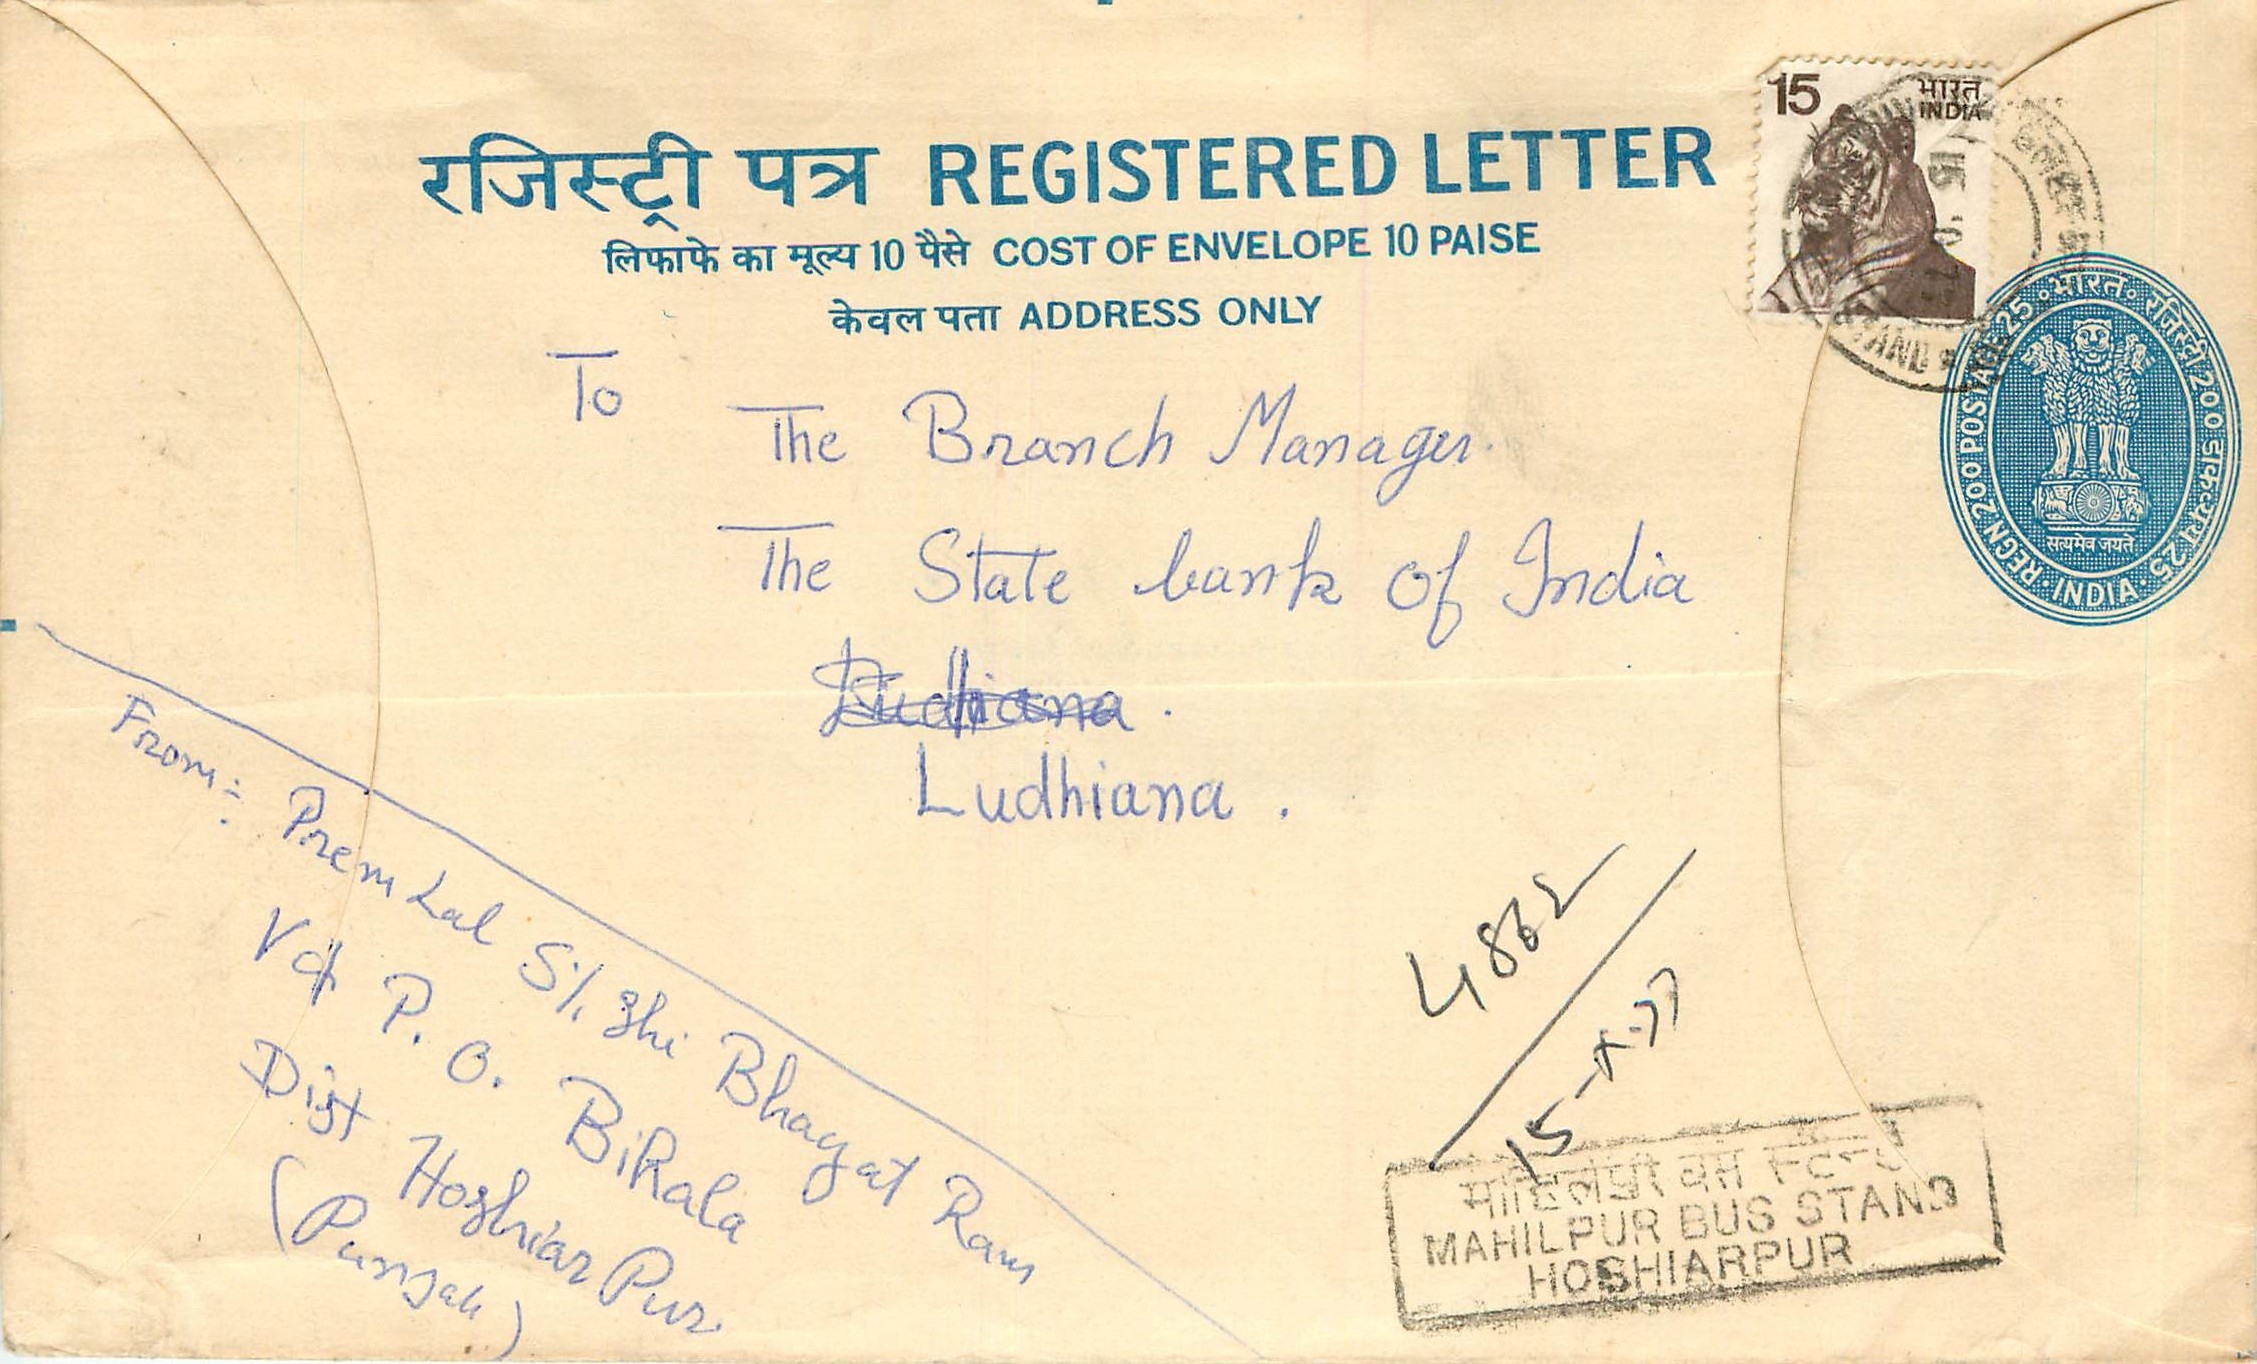 रजिस्ट्री पत्र REGISTERED LETTER
लिफाफे का मूल्य 10 पैसे COST OF ENVELOPE 10 PAISE
केवल पता ADDRESS ONLY
15 भारत
INDIA
REGN 200 POSTAGE 25 भारत रजिस्ट्री 200 डाकव्यय 25 INDIA
सत्यमेव जयते
To
The Branch Manager.
The State bank of India
Ludhiana.
From:- Prem Lal S/. Shi Bhagat Ram
V & P. O. Bikala
Dist Hoshiar Pur
(Punjab)
4862
15-X-77
माहिलपुर बस स्टैन्ड
MAHILPUR BUS STAND
HOSHIARPUR